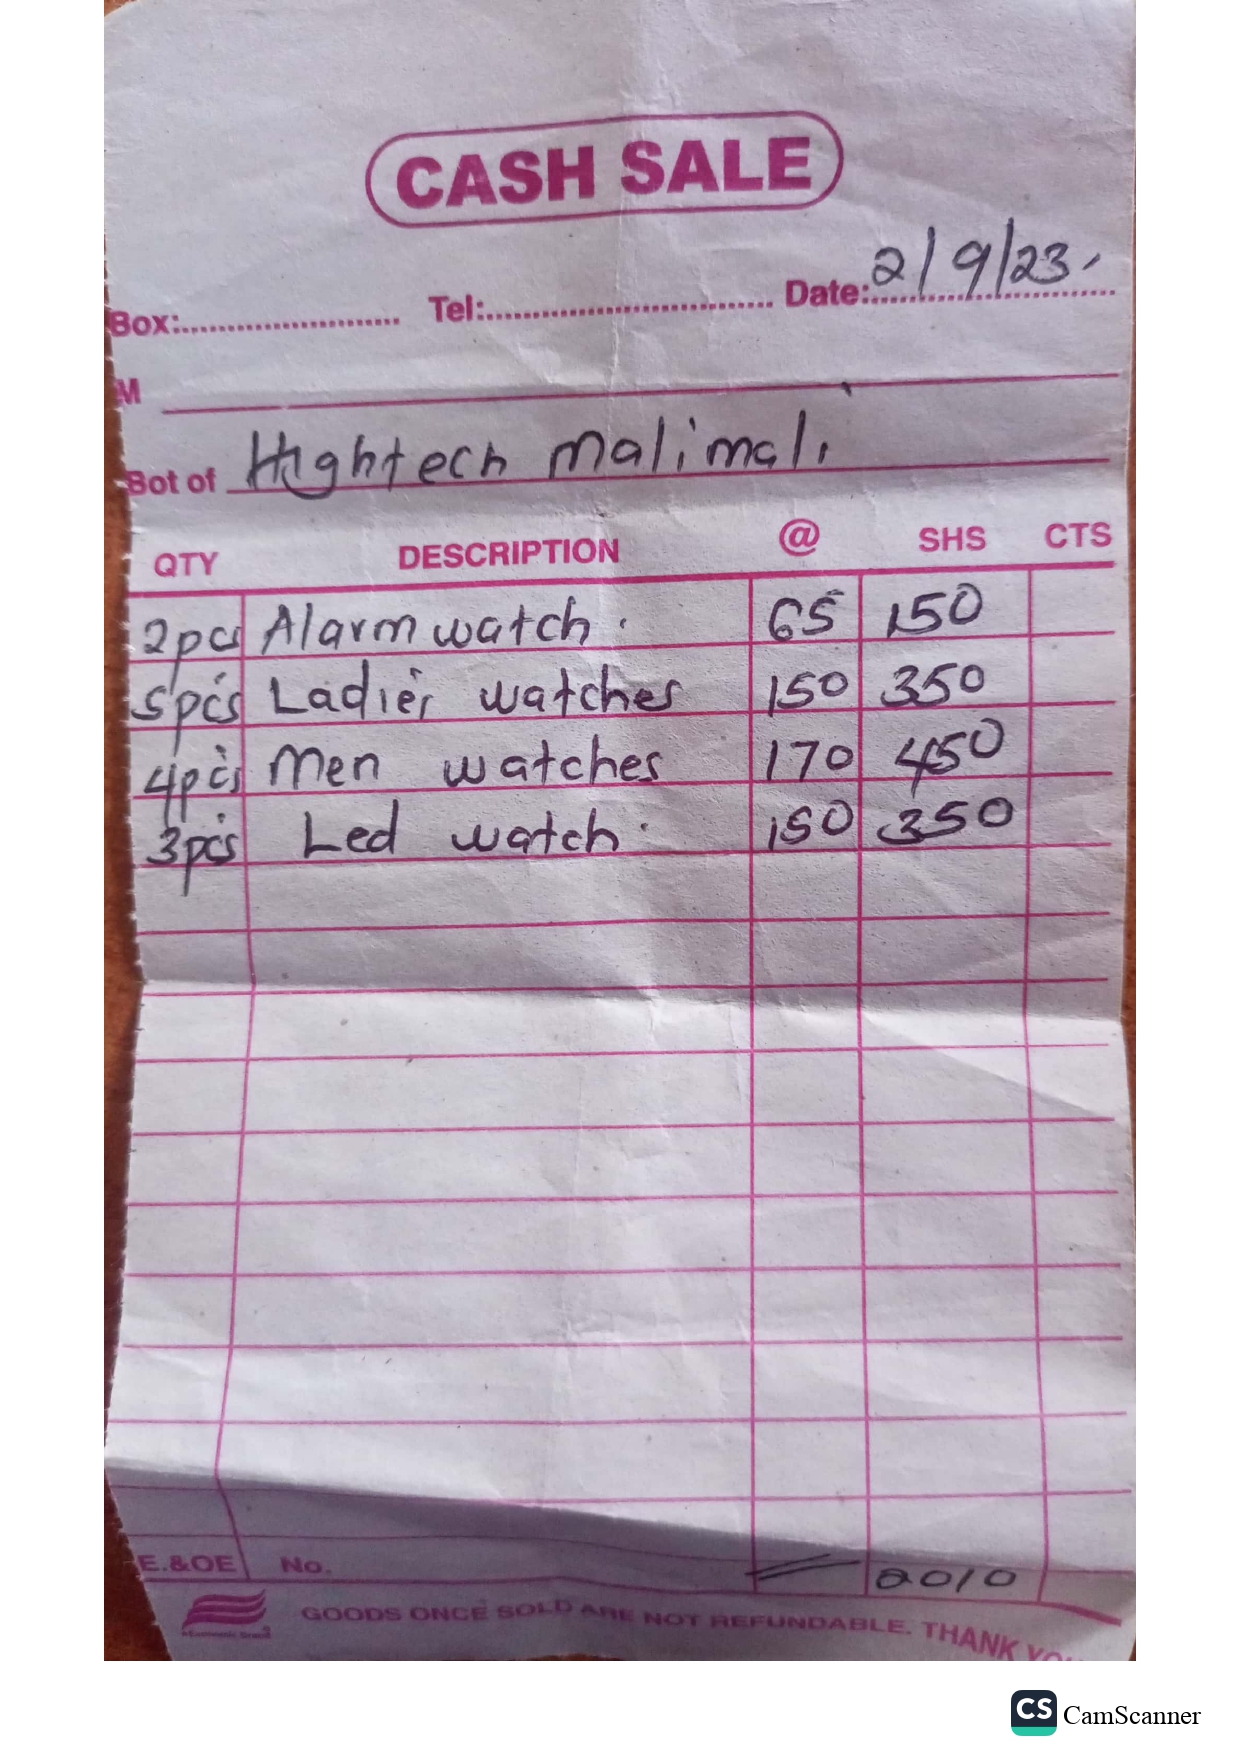 CASH SALE
Box: Tel: Date: 2/9/23
M
Bot of Hightech malimali
QTY DESCRIPTION @ SHS CTS
2pcs Alarm watch. 65 150
5pcs Ladies watches 150 350
4pcs Men watches 170 450
3pcs Led watch. 150 350
E.&OE No. 2010
GOODS ONCE SOLD ARE NOT REFUNDABLE. THANK YOU
CS CamScanner